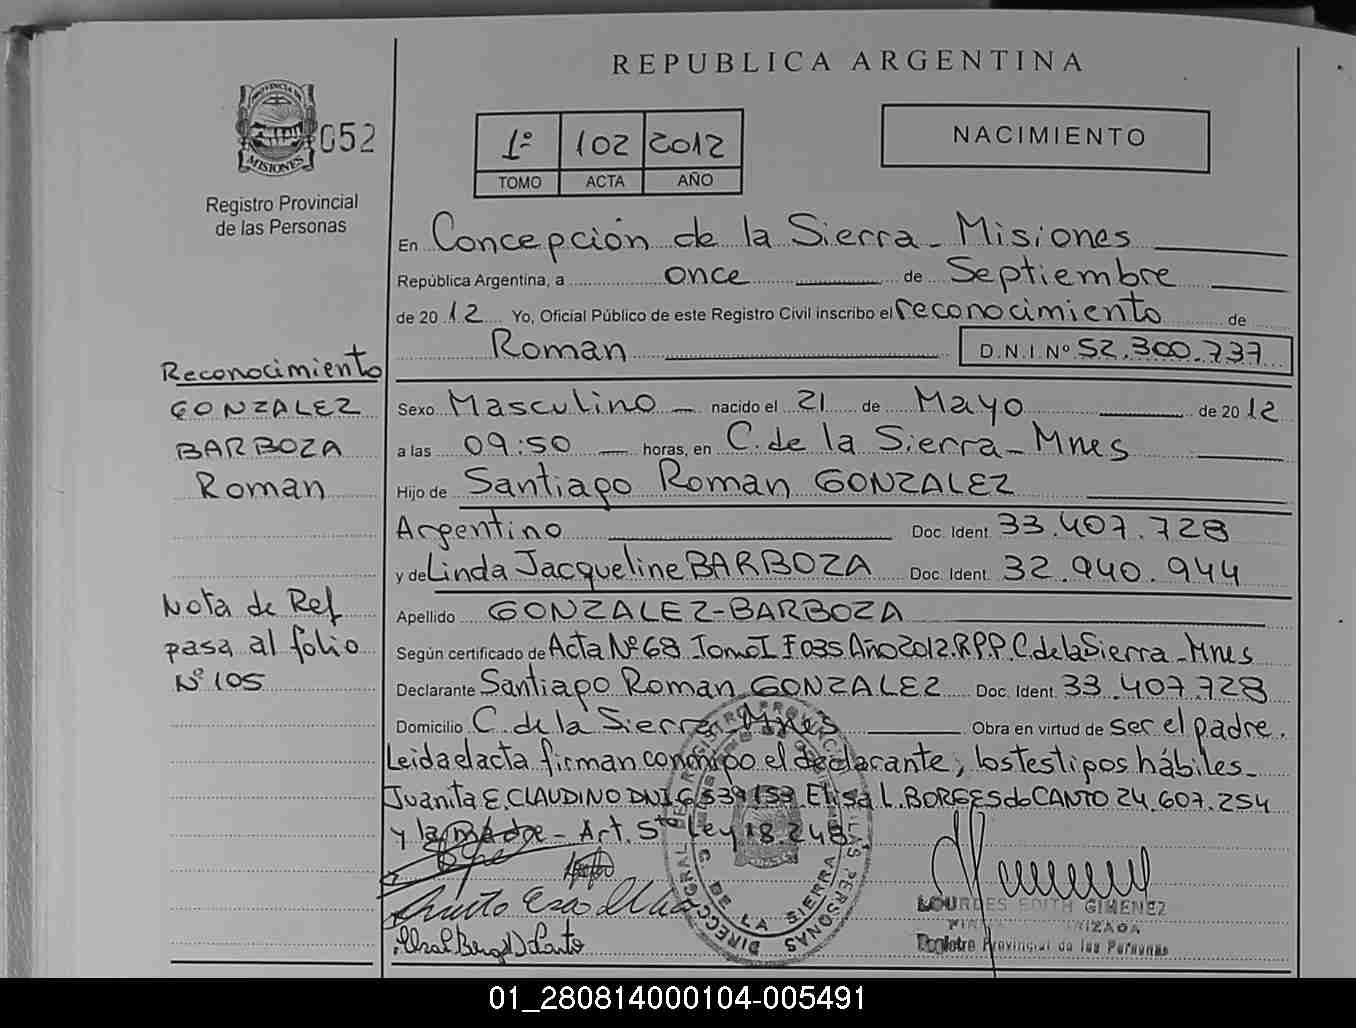 REPUBLICA ARGENTINA
PROVINCIA DE
MISIONES
052
Registro Provincial
de las Personas
1º 102 2012
TOMO ACTA AÑO
NACIMIENTO
En Concepción de la Sierra - Misiones
República Argentina, a once de Septiembre
de 2012 Yo, Oficial Público de este Registro Civil inscribo el reconocimiento de
Roman D.N.I.Nº 52.300.737
Reconocimiento
GONZALEZ
BARBOZA
Roman
Nota de Ref
pasa al folio
Nº 105
Sexo Masculino - nacido el 21 de Mayo de 2012
a las 09:50 horas, en C. de la Sierra - Mnes
Hijo de Santiago Roman GONZALEZ
Argentino Doc. Ident. 33.407.728
y de Linda Jacqueline BARBOZA Doc. Ident. 32.940.944
Apellido GONZALEZ-BARBOZA
Según certificado de Acta Nº 68 Tomo I F 035 Año 2012. R.P.P. C. de la Sierra - Mnes
Declarante Santiago Roman GONZALEZ Doc. Ident. 33.407.728
Domicilio C. de la Sierra - Mnes Obra en virtud de ser el padre.
Leida el acta firman conmigo el declarante, los testigos hábiles
Juanita E. CLAUDINO DNI 6539153 Elisa L. BORGES do CANTO 24.607.254
y la Madre - Art. 5º Ley 18.248
DIRECC GRAL DEL REGISTRO PROVINCIAL DE LAS PERSONAS
C DE LA SIERRA
LOURDES EDITH GIMENEZ
Registro Provincial de las Personas
01_280814000104-005491